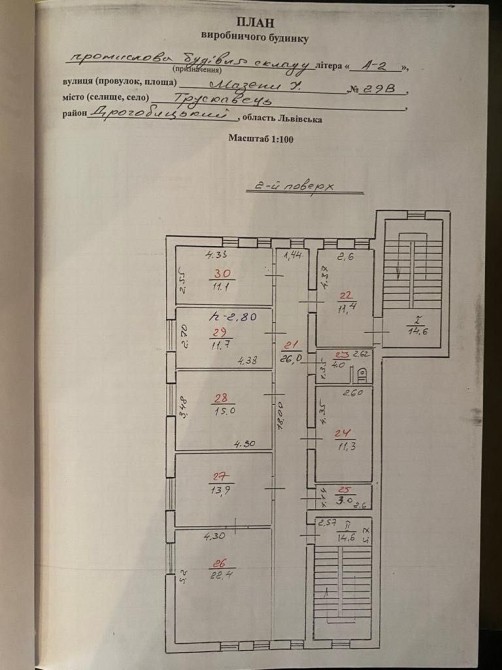 ПЛАН
виробничого будинку
промислова будівля складу літера « А-2 »,
(призначення)
вулиця (провулок, площа) Мазепи І. № 29В,
місто (селище, село) Трускавець,
район Дрогобицький, область Львівська
Масштаб 1:100
2-й поверх
4.35 1,44 2,6
2.55 30 11.1
4.37 22 11,4
I 14,6
h-2,80
2.70 29 11,7 4,33
21 26,0
1.35 23 2.0 2.62
3,48 28 15,0 4.30
18,00
2.60
4.35 24 11,3
27 13,9
25 3.0 2.6
4,30
2,57 II 14,6
26 22,4